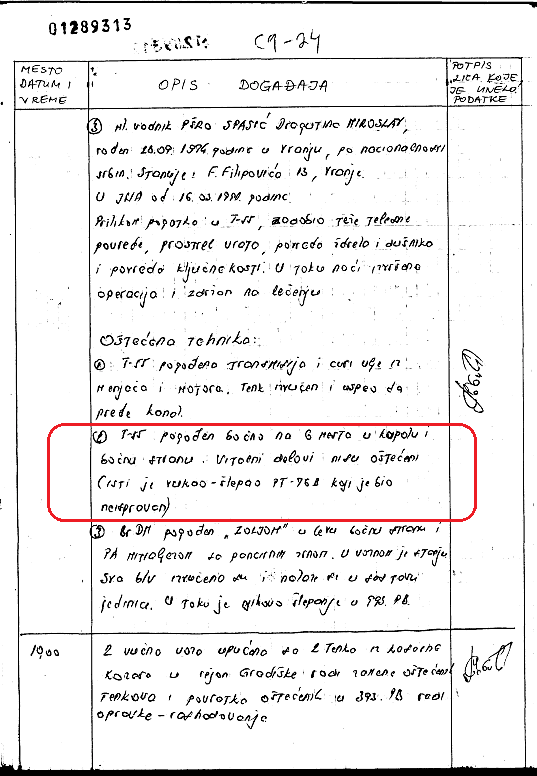 01289313
C9-24
MESTO
DATUM I
VREME
OPIS DOGAĐAJA
POTPIS
LICA KOJE
JE UNELO
PODATKE
③ ml. vodnik PŠRO SPASIĆ Dragutina MIROSLAV,
rođen godine u Vranju, po nacionalnosti
srbin. Stanuje: F. Filipovića 13, Vranje.
U JNA od godine.
Prilikom pogotka u T-55, zadobio teže telesne
povrede, prostrel vrata, povreda ždrela i dušnika
i povreda ključne kosti. U toku noći izvršena
operacija i zadržan na lečenju.
Oštećena tehnika:
① T-55 pogođena transmisija i curi ulje iz
menjača i motora. Tenk izvučen i uspeo da
pređe kanal.
② T-55 pogođen bočno na 6 mesta u kupolu i
bočnu stranu. Vitalni delovi nisu oštećeni
(isti je vukao-šlepao PT-76B koji je bio
neispravan)
③ BrDM pogođen „ZOLJOM" u levu bočnu stranu i
PA mitraljezom sa pancirnim zrnom. U voznom je stanju
Sva b/v izvučeno su i nalaze se u sastavu
jedinica. U toku je njihovo šlepanje u 993. PB.
19,00
2 vučna voza upućena sa 2 tenka iz kasarne
Kozara u rejon Gradiške radi zamene oštećenih
tenkova i povratka oštećenih u 393. PB radi
opravke-rashodovanja